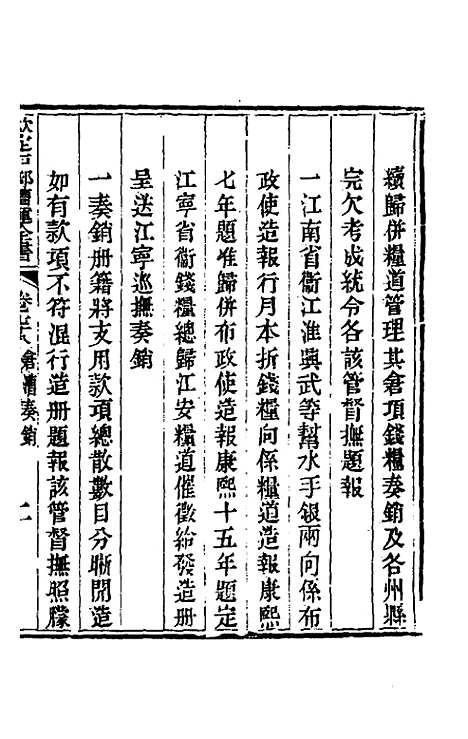 續歸併糧道管理其倉項錢糧奏銷及各州縣
完欠考成統令各該管督撫題報
一江南省衞江淮興武等幫水手銀兩向係布
政使造報行月本折錢糧向係糧道造報康熙
七年題准歸併布政使造報康熙十五年題定
江寧省衞錢糧總歸江安糧道催徵給發造冊
呈送江寧巡撫奏銷
一奏銷册籍將支用款項總散數目分晰開造
如有款項不符混行造册題報該管督撫照朦
欽定戶部漕運全書 卷 倉漕奏銷 二